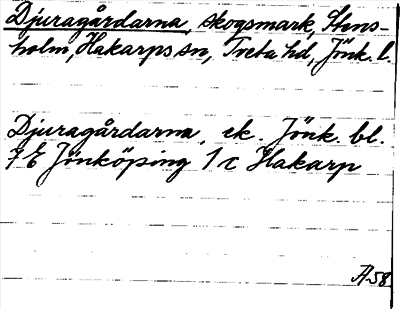 Djuragårdarna, skogsmark, Stens-
holm, Hakarps sn, Tveta hd, Jönk. l.
Djuragårdarna, ek. Jönk. bl.
7 E Jönköping 1 c Hakarp
A 58